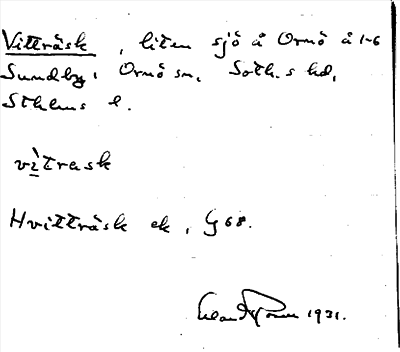 Vitträsk, liten sjö å Ornö å 1-6
Sundby, Ornö sn, Soth.s hd,
Sthlms l.
vìtrask
Hvitträsk ek, G 68.
1931.